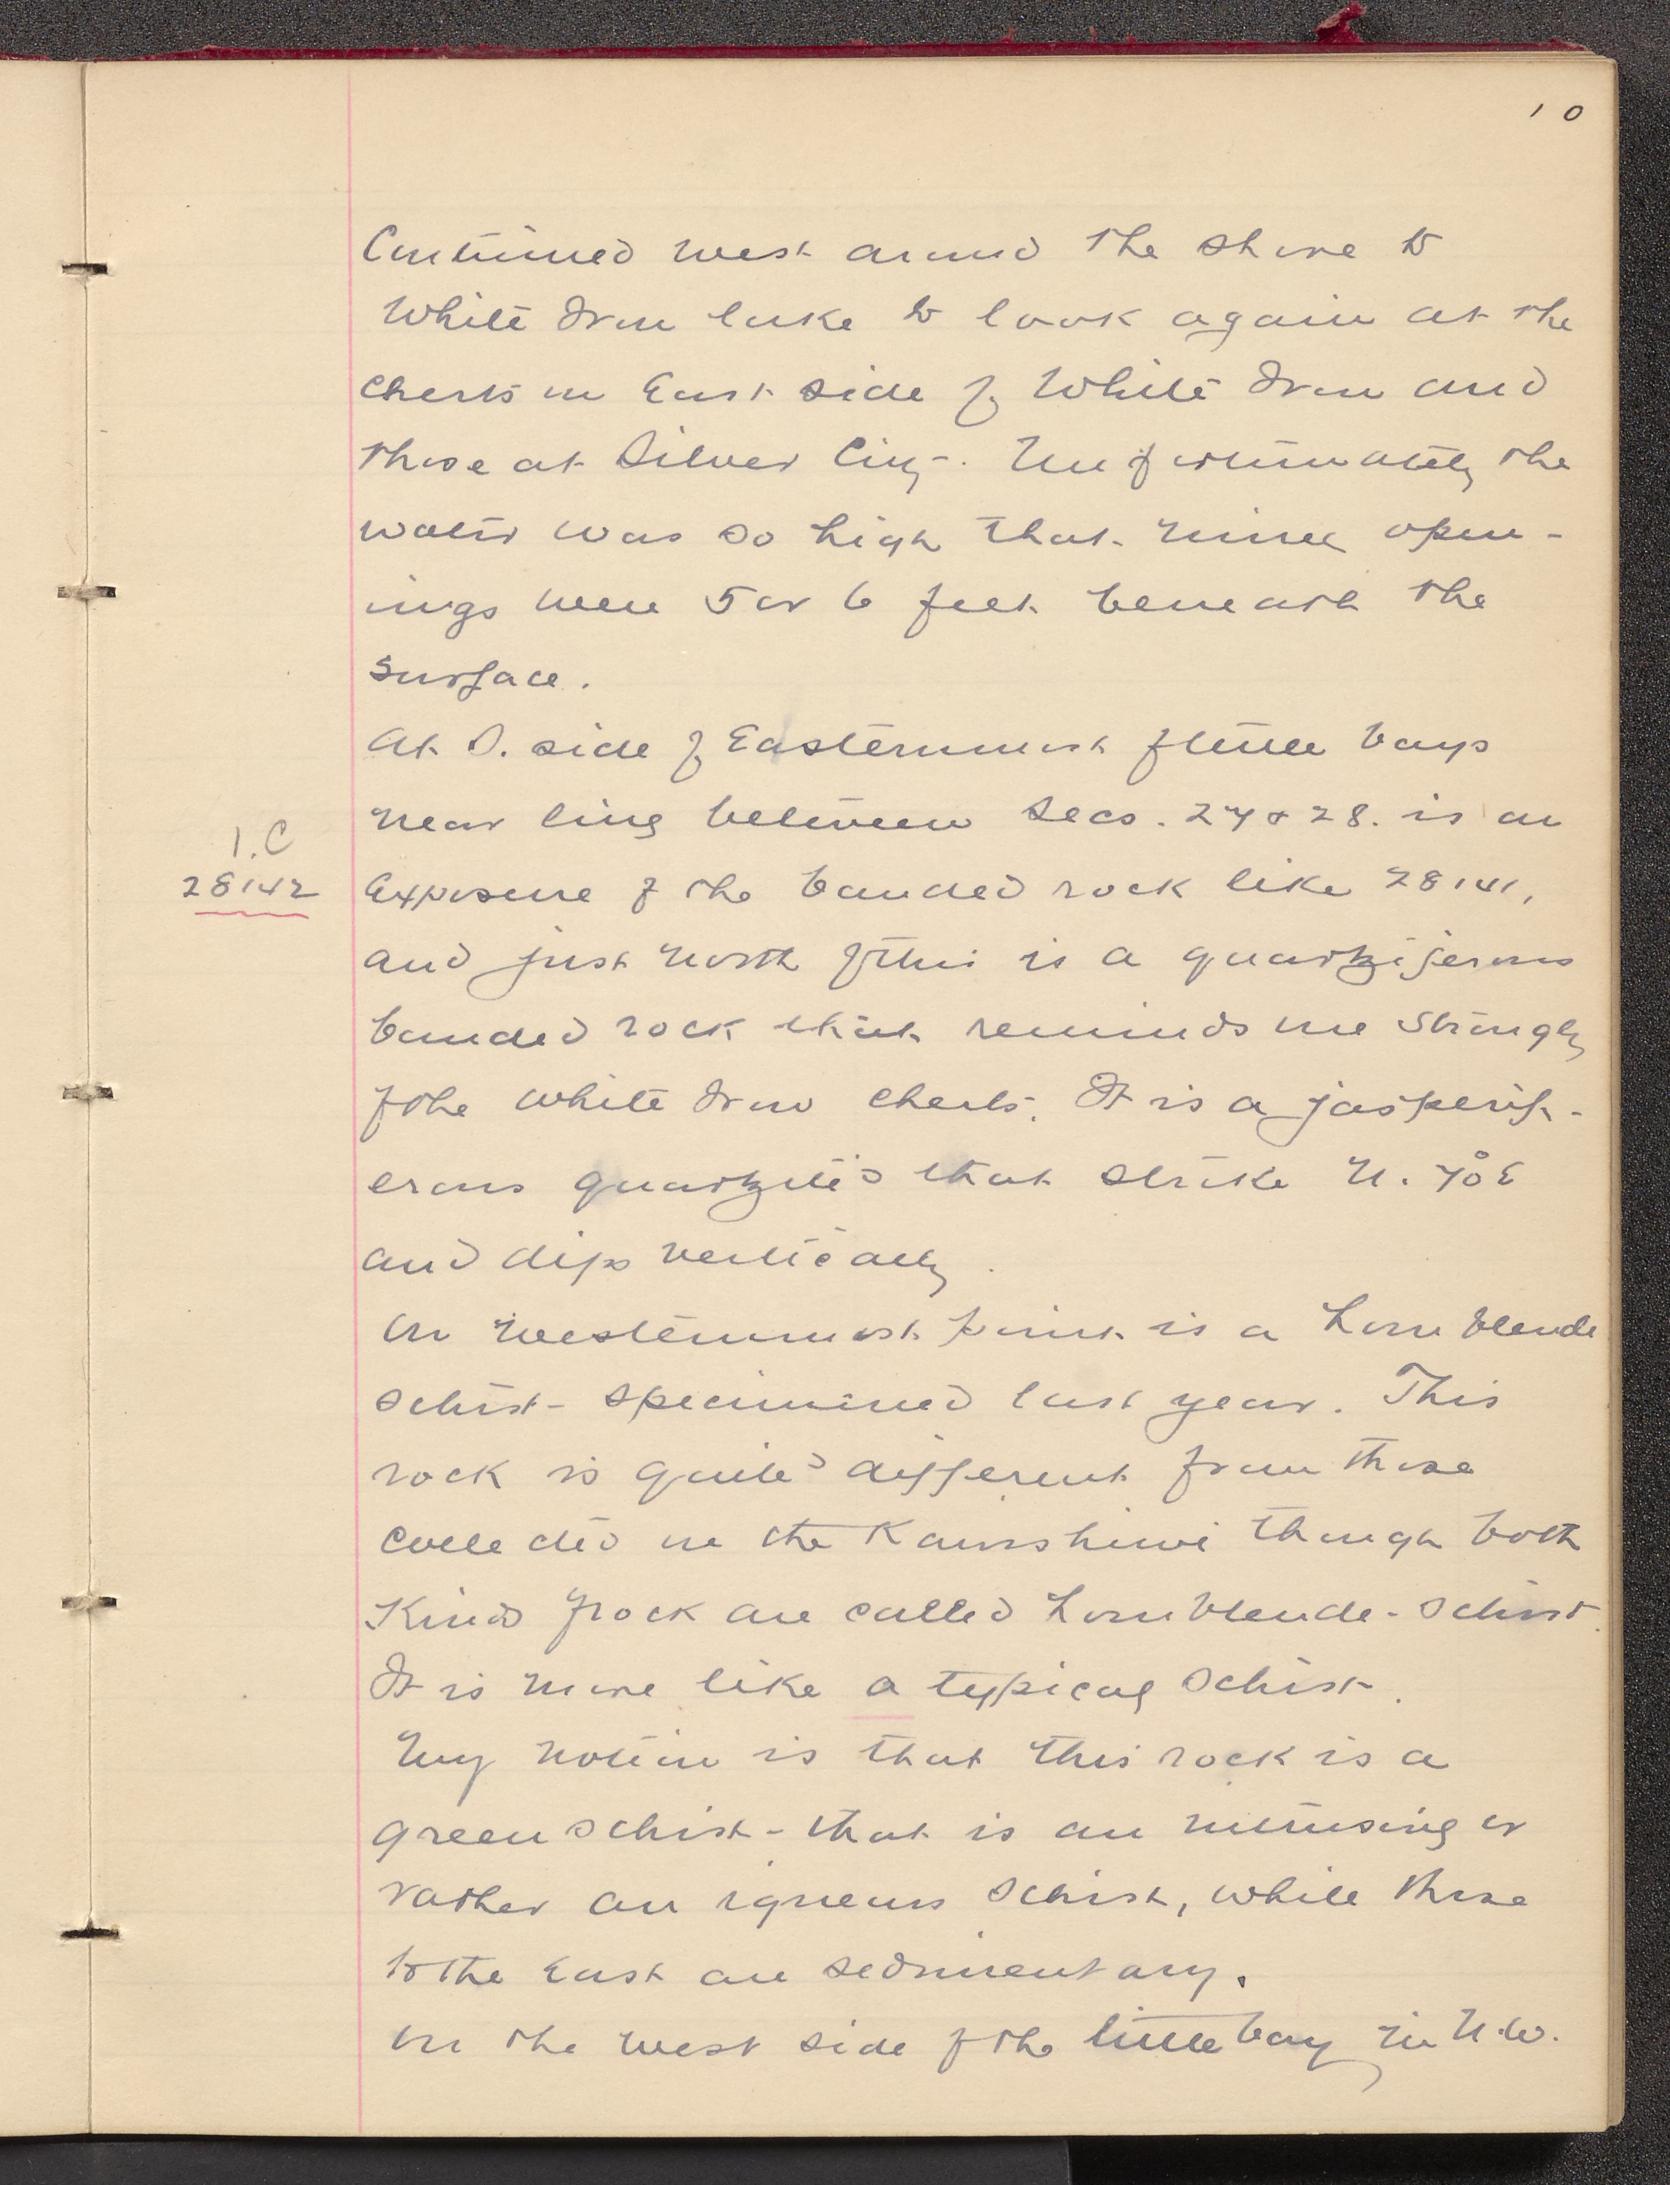 10
Continued west around the shore to
White Iron lake to look again at the
cherts on East side of White Iron and
those at Silver City. Unfortunately the
water was so high that mine open-
ings were 5 or 6 feet beneath the
surface.
At S. side of Easternmost of little bays
near line between Secs. 27 & 28. is an
1.C
28142
exposure of the banded rock like 28141,
and just north of this is a quartziferous
banded rock that reminds me strongly
of the White Iron cherts. It is a jasperif-
erous quartzite that strike N. 70° E
and dips vertically.
On westernmost point is a hornblende
schist - specimened last year. This
rock is quite different from those
collected on the Kawishiwi though both
kinds of rock are called hornblende-schist.
It is more like a typical schist.
My notion is that this rock is a
green schist - that is an intrusive or
rather an igneous schist, while those
to the East are sedimentary.
On the west side of the little bay in N.W.